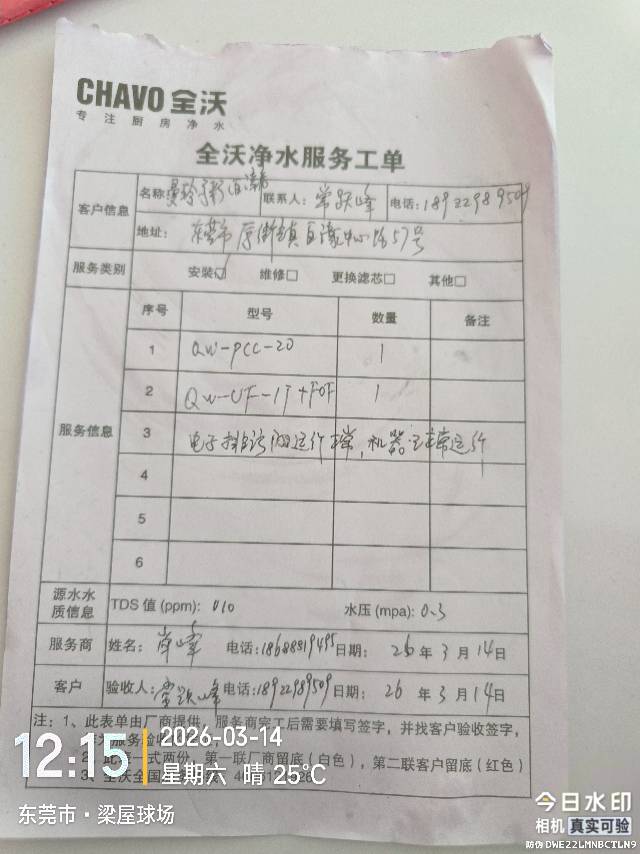 CHAVO 全沃
专注厨房净水
全沃净水服务工单
客户信息 名称 联系人：常跃峰 电话：18922989509
地址：东莞市厚街镇 中心路57号
服务类别 安装☑ 维修□ 更换滤芯□ 其他□
服务信息 序号 型号 数量 备注
1 QW-PCC-20 1
2 QW-UF-1T+FOF 1
3 电子排污阀运行正常，机器正常运行
4
5
6
源水水质信息 TDS值(ppm): 010 水压(mpa): 0.3
服务商 姓名： 电话：18688819495 日期：26年3月14日
客户 验收人：常跃峰 电话：18922989509 日期：26年3月14日
注：1、此表单由厂商提供，服务商完工后需要填写签字，并找客户验收签字，
为服务验收
2、此 一式两份，第一联厂商留底（白色），第二联客户留底（红色）
3、全沃全国
12:15 2026-03-14
星期六 晴 25℃
东莞市·梁屋球场
今日水印
相机 真实可验
防伪 DWE22LMNBCTLN9